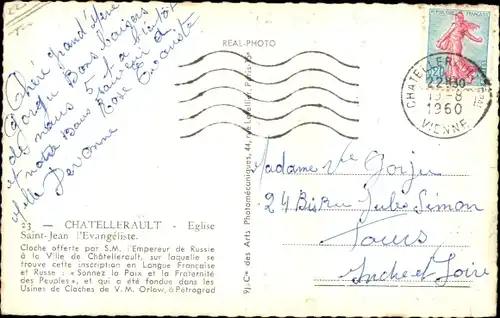 REAL-PHOTO
Chère grand'Mère
Gorju Bons baisers
de nous 5 et à bientôt
et notre bons
Rose
et
23 — CHATELLERAULT - Eglise
Saint-Jean l'Evangéliste.
Cloche offerte par S.M. l'Empereur de Russie
à la Ville de Châtellerault, sur laquelle se
trouve cette inscription en Langue Française
et Russe : « Sonnez la Paix et la Fraternité
des Peuples », et qui a été fondue dans les
Usines de Cloches de V. M. Orlow, à Pétrograd
9) Cie des Arts Photomécaniques, 44, rue Letellier, Paris-15e
REPUBLIQUE FRANÇAISE
CHATELLERAULT
22H30
19-8
1960
VIENNE
Madame Vve Gorju
24 Bis Rue Jules Simon
Tours
Indre et Loire